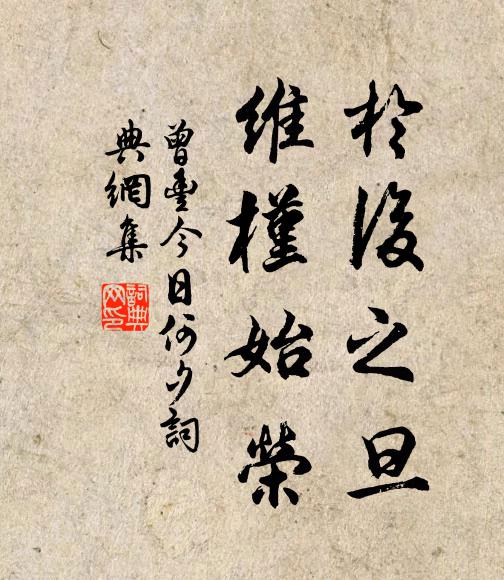 於後之旦
維槿始榮
曾豐今日何夕詞
典網集
詞典網印